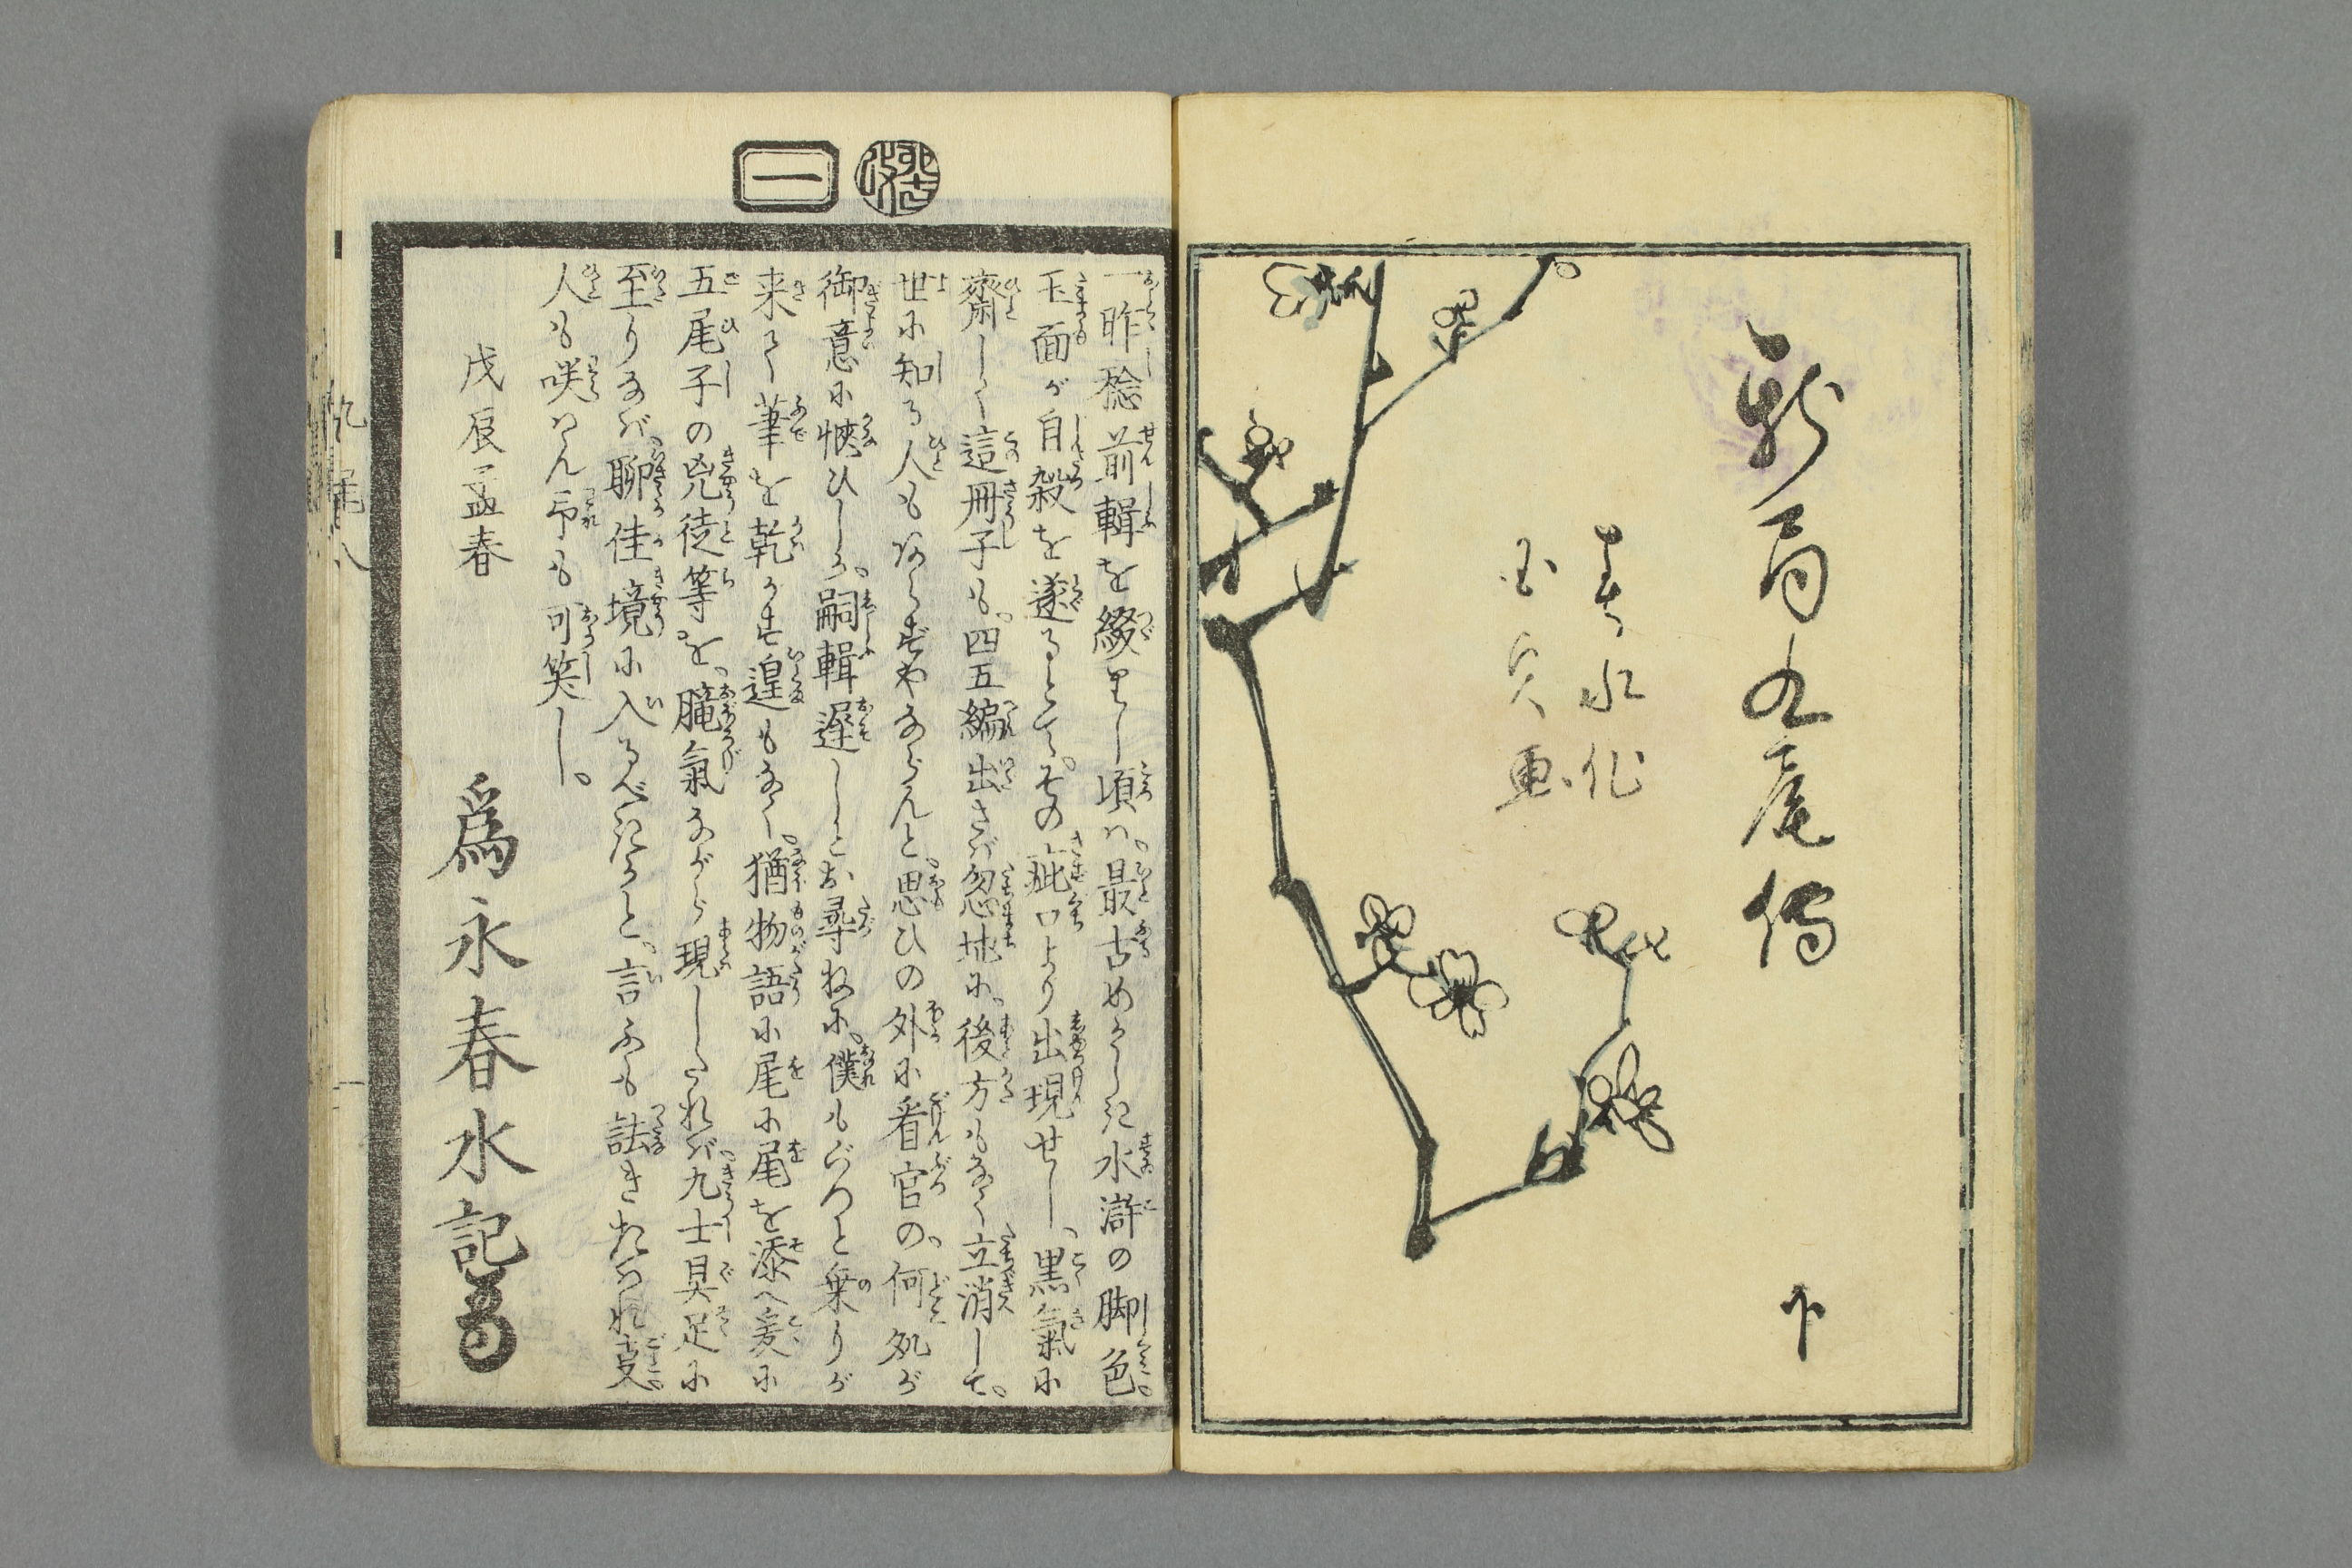 新局九尾傳
春水作
國貞画
下
一
一昨稔前輯を綴りし頃ハ。最古めかしき水滸の脚色。
玉面が自殺を遂るとて。その疵口より出現せし、黒氣に
齋しく這册子も。四五編出さバ忽地に、後方もなく立消して。
世に知る人もあらずやならんと。思ひの外に看官の。何処が
御意に愜ひしか。嗣輯遅しとお尋ねに。僕もぐつと乗りが
来て筆を乾かす遑もなく。猶物語に尾に尾を添へ爰に
五尾子の兇徒等を。朧氣ながら現したれバ九士具足に
至りなバ。聊佳境に入るべきかと。言ふも誌きたはれ叓。
人も咲はん予も可笑し。
戊辰孟春
為永春水記
九尾八
一